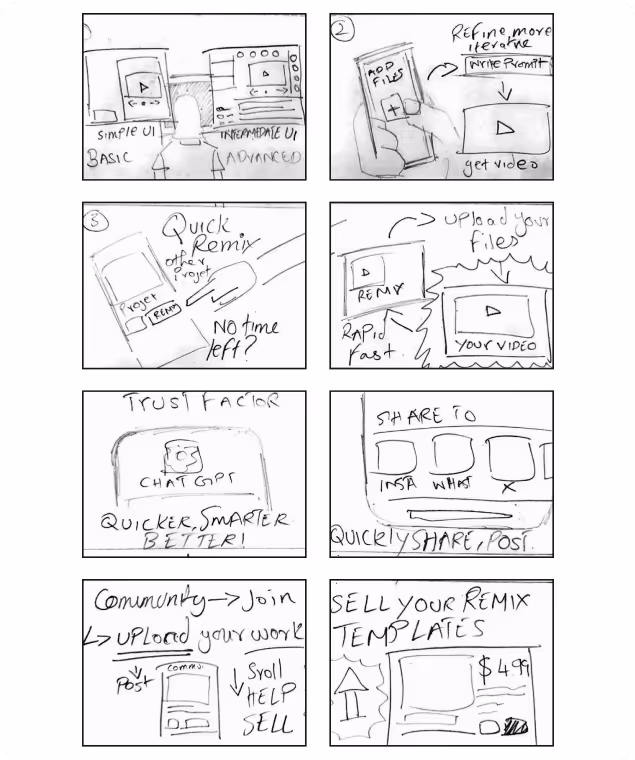 SIMPLE UI
INTERMEDIATE UI
BASIC
ADVANCED
2
ADD
FILES
+
REfine, more
iteratne
Write Promt
get video
3
Quick
Remix
other
Projet
Projet
REMIX
No time
left?
UPLOAD your
files
REMIX
RAPID
fast.
YOUR VIDEO
TRUST FACTOR
CHAT GPT
QUICKER, SMARTER
BETTER!
SHARE TO
INSTA WHAT X
QUICKLY SHARE, POST.
Community → Join
↳ UPLOAD your work
Post
COMMU
Sroll
HELP
SELL
SELL YOUR REMIX
TEMPLATES
$4.99